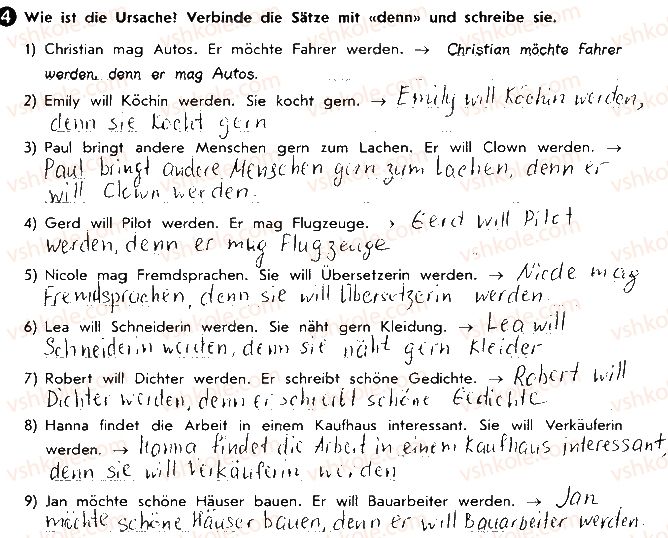 4 Wie ist die Ursache? Verbinde die Sätze mit «denn» und schreibe sie.
1) Christian mag Autos. Er möchte Fahrer werden. → Christian möchte Fahrer
werden, denn er mag Autos.
2) Emily will Köchin werden. Sie kocht gern. → Emily will Köchin werden,
denn sie kocht gern
3) Paul bringt andere Menschen gern zum Lachen. Er will Clown werden. →
Paul bringt andere Menschen gern zum Lachen, denn er
will Clown werden.
4) Gerd will Pilot werden. Er mag Flugzeuge. → Gerd will Pilot
werden, denn er mag Flugzeuge
5) Nicole mag Fremdsprachen. Sie will Übersetzerin werden. → Nicole mag
Fremdsprachen, denn sie will Übersetzerin werden.
6) Lea will Schneiderin werden. Sie näht gern Kleidung. → Lea will
Schneiderin werden, denn sie näht gern Kleider
7) Robert will Dichter werden. Er schreibt schöne Gedichte. → Robert will
Dichter werden, denn er schreibt schöne Gedichte
8) Hanna findet die Arbeit in einem Kaufhaus interessant. Sie will Verkäuferin
werden. → Hanna findet die Arbeit in einem Kaufhaus interessant,
denn sie will Verkäuferin werden
9) Jan möchte schöne Häuser bauen. Er will Bauarbeiter werden. → Jan
möchte schöne Häuser bauen, denn er will Bauarbeiter werden.